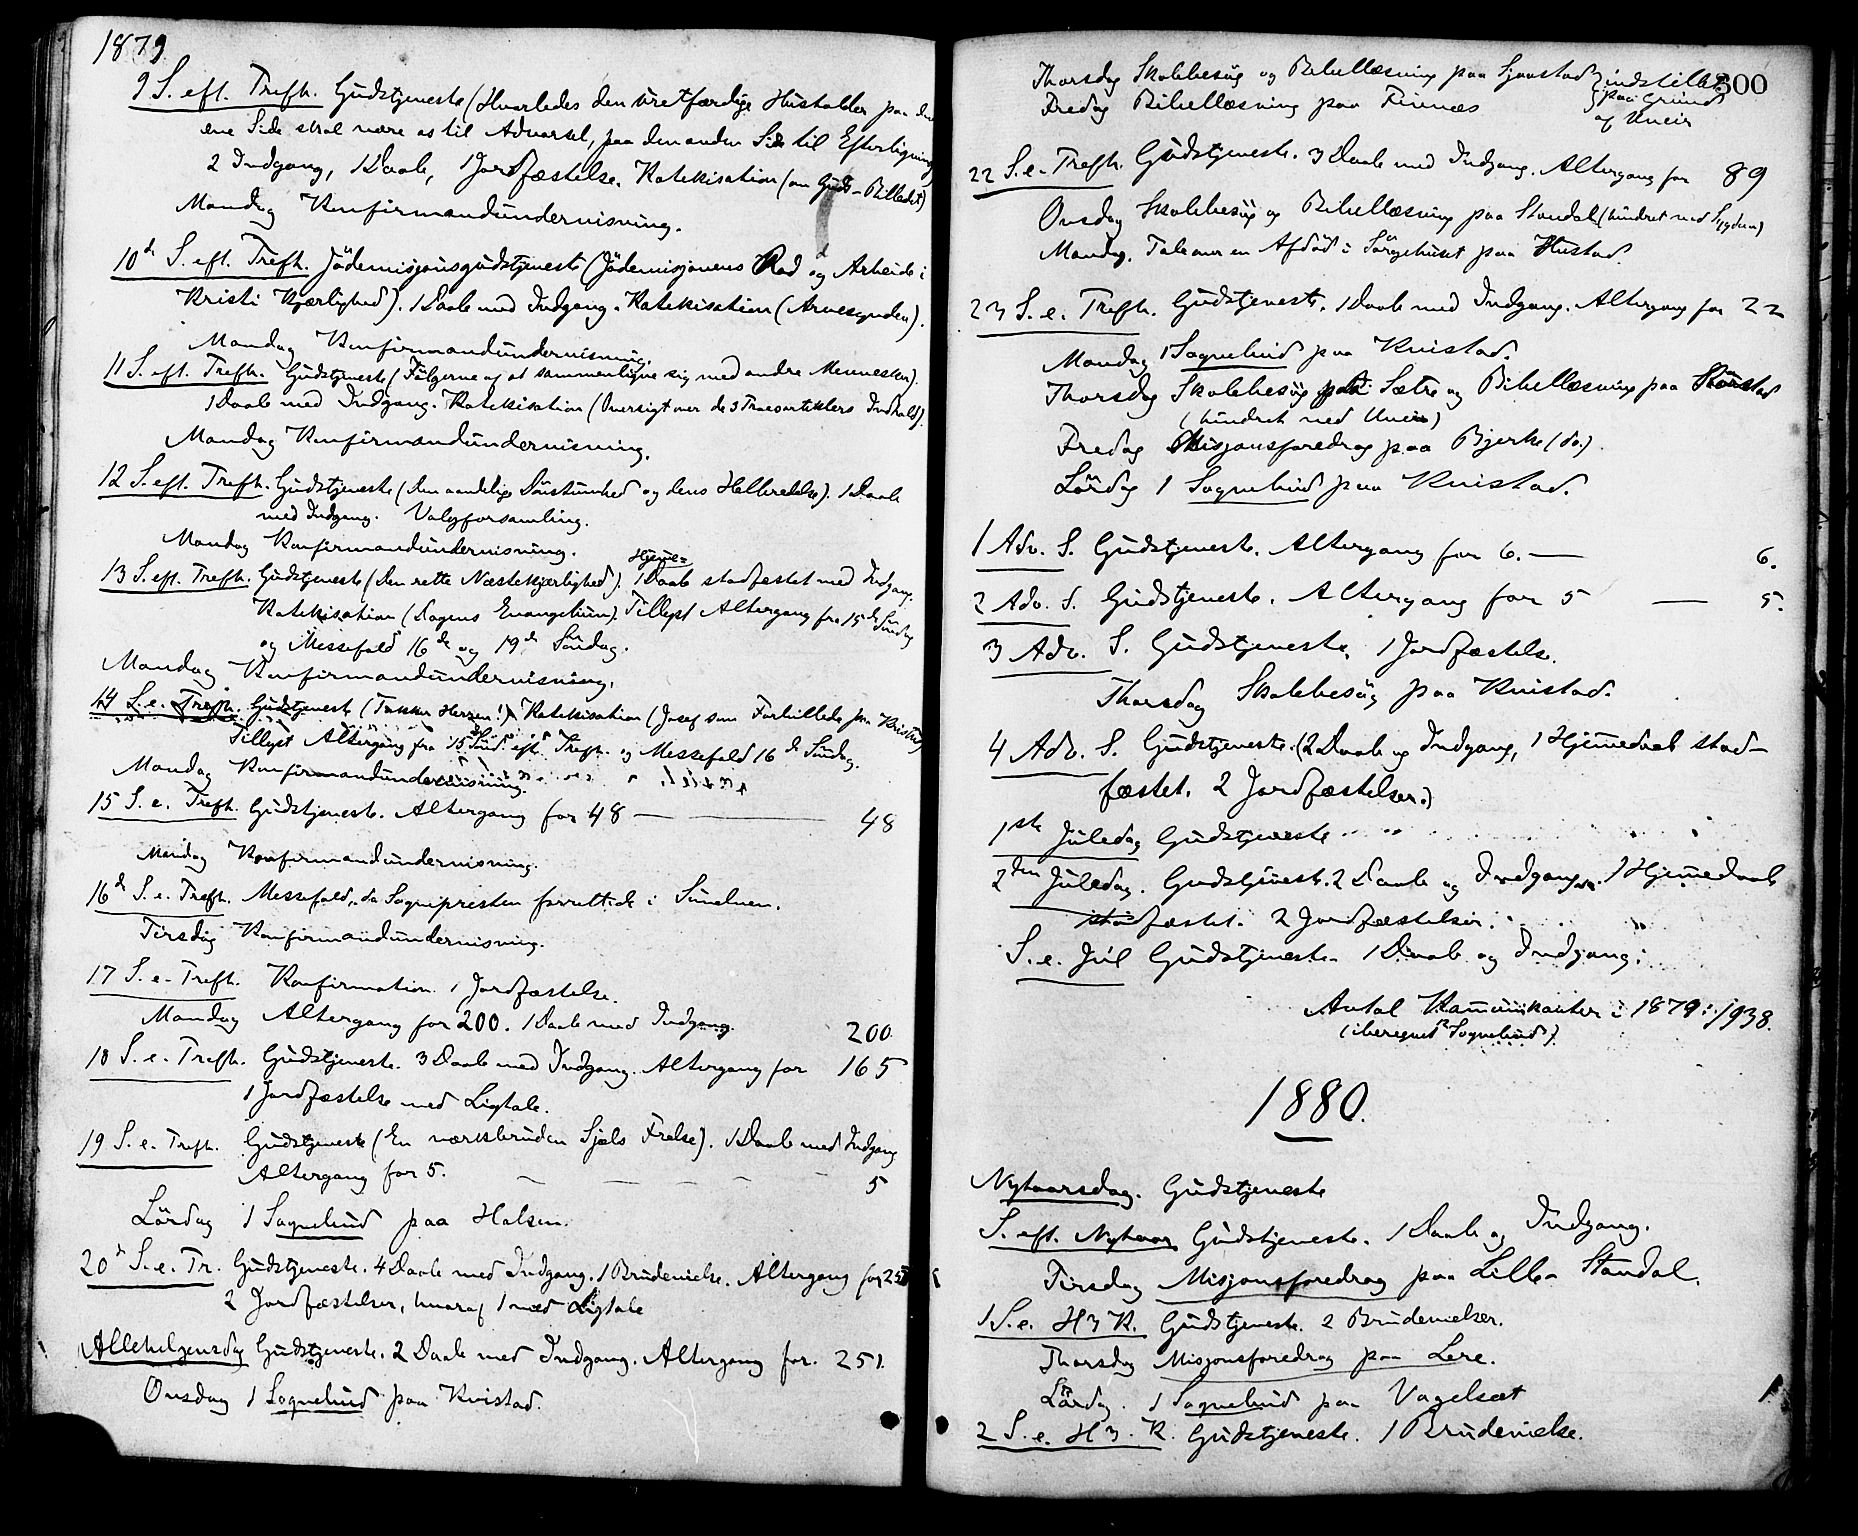 1879
9 S. eft. Trefh. Gudstjeneste (Hvorledes den uretfærdige Husholder paa den
ene Side skal være os til Advarsel, paa den anden Side til Efterligning
2 Indgang, 1 Daab, 1 Jordfæstelse. Katekisation (om Guds-Billedet)
Mandag Konfirmandundervisning.
10de S. eft. Trefh. Jödemisjonsgudstjeneste (Jödemisjonens Rad og Arbeide i
Kristi Kjærlighed). 1 Daab med Indgang. Katekisation (Arvesynden).
Mandag Konfirmandundervisning.
11 S. eft. Trefh. Gudstjeneste (Fölgerne af at sammenligne sig med andre Mennesker).
1 Daab med Indgang. Katekisation (Oversigt over de 3 Troesartiklers Indhold).
Mandag Konfirmandundervisning.
12 S. eft. Trefh. Gudstjeneste (den aandelige Dövstumhed og dens Helbredelse). 1 Daab
med Indgang. Valgforsamling.
Mandag Konfirmandundervisning.
13 S. eft. Trefh. Gudstjeneste (den rette Næstekjærlighed). 1 Hjeme- Daab stadfæstet med Indgang.
Katekisation (Dagens Evangelium). Tillyst Altergang fra 15de Söndag
og Messefald 16de og 19de Söndag.
Mandag Konfirmandundervisning.
14 S. e. Trefh. Gudstjenest (Takker Herren!). Katekisation (Josef som Forbillede paa Kristus)
Tillyst Altergang fra 15 Sönd. eft. Trefh. og Messefald 16de Söndag.
Mandag Konfirmandundervisning.
15 S. e. Trefh. Gudstjeneste. Altergang for 48 — — 48
Mandag Konfirmandundervisning.
16de S. e. Trefh. Messefald, da Sognepresten forrettede i Surnadalen.
Tirsdag Konfirmandundervisning.
17 S. e. Trefh. Konfirmation. 1 Jordfæstelse.
Mandag Altergang for 200. 1 Daab med Indgang. 200
18 S. e. Trefh. Gudstjeneste. 3 Daab med Indgang. Altergang for 165
1 Jordfæstelse med Ligtale.
19 S. e. Trefh. Gudstjeneste (En værkbruden Sjæls Frelse). 1 Daab med Indgang
Altergang for 5. — — — — 5
Lördag 1 Sognebud paa Halsen.
20de S. e. Tr. Gudstjeneste. 4 Daab med Indgang. 1 Brudevielse. Altergang for 25
2 Jordfæstelser, hvoraf 1 med Ligtale
Allehelgensdag Gudstjeneste. 2 Daab med Indgang. Altergang for. 251.
Onsdag 1 Sognebud paa Kvistad.
300
Thorsdag Skolebesög og Bibellæsning paa Sjaastad } indstillet
Fredag Bibellæsning paa Finnæs } paa Grund
af Uveir
22 S. e. Trefh. Gudstjeneste. 3 Daab med Indgang. Altergang for 89
Onsdag Skolebesög og Bibellæsning paa Standal (hindret ved Sygdom)
Mandag. Tale over en Afdöd i Sörgehuset paa Hustad.
23 S. e. Trefh. Gudstjeneste. 1 Daab med Indgang. Altergang for 22
Mandag 1 Sognebud paa Kvistad.
Thorsdag Skolebesög paa Sætre og Bibellæsning paa
(hindret ved Uveir)
Fredag Misjonsforedrag paa Bjerke (do.)
Lördag 1 Sognebud paa Kvistad.
1 Adv. S. Gudstjeneste. Altergang for 6. — 6.
2 Adv. S. Gudstjeneste. Altergang for 5 — 5.
3 Adv. S. Gudstjeneste. 1 Jordfæstelse.
Thorsdag Skolebesög paa Kvistad.
4 Adv. S. Gudstjeneste. (2 Daab og Indgang, 1 Hjemedaab stad-
fæstet. 2 Jordfæstelser.)
1ste Juledag Gudstjeneste
2den Juledag. Gudstjeneste. 2 Daab og Indgang. 1 Hjemmedaab
stadfæstet. 2 Jordfæstelser.
S. e. Jul Gudstjeneste. 1 Daab og Indgang.
Antal Kommunikanter i 1879: 1938.
(iberegnet Sognebud).
1880.
Nytaarsdag. Gudstjeneste
S. eft. Nytaar Gudstjeneste. 1 Daab og Indgang.
Tirsdag Misjonsforedrag paa Lille-Standal.
1 S. e. H 3 K. Gudstjeneste. 2 Brudevielser.
Thorsdag Misjonsforedrag paa Lere.
Lördag. 1 Sognebud paa Vagelsæt 1
2 S. e. H 3. K. Gudstjeneste. 1 Brudevielse.